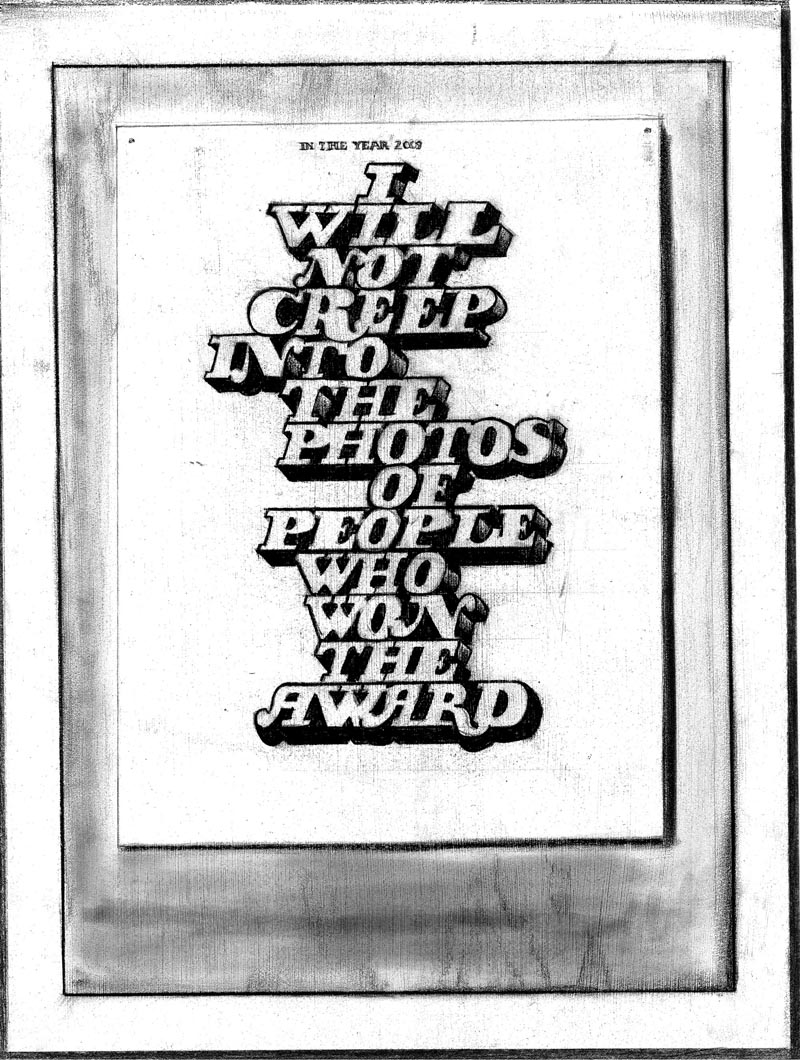 IN THE YEAR 2009
I
WILL
NOT
CREEP
INTO
THE
PHOTOS
OF
PEOPLE
WHO
WON
THE
AWARD